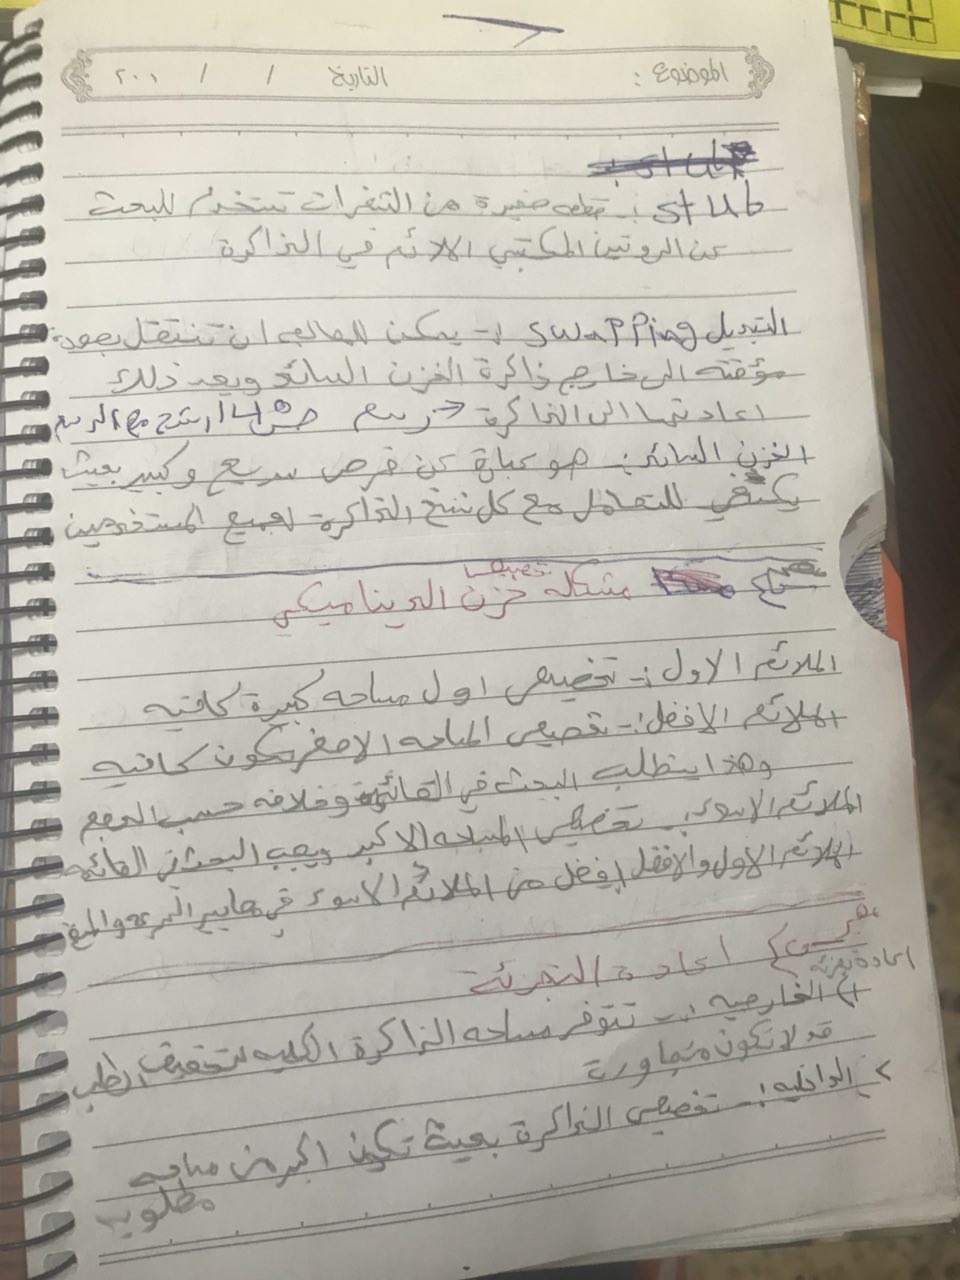 الموضوع : التاريخ / / ٢٠٠١
stub :- قطعه صغيرة من الشفرات تستخدم للبحث
عن الروتين المكتبي الملائم في الذاكرة
التبديل swapping :- يمكن للعالجه ان تنتقل بصورة
مؤقته الى خارج ذاكرة الخزن الساند وبعد ذلك
اعادتها الى الذاكرة → رسم ص 14 مع الرسم
الخزن الساند :- هو عبارة عن قرص سريع وكبير بحيث
يكفي للتعامل مع كل نسخ الذاكرة لجميع المستخدمين
مشكله تخصيص خزن الديناميكي
الملائم الاول :- تخصيص اول مساحه كبيرة كافيه
الملائم الافضل :- تخصيص المساحه الاصغر تكون كافيه
وهذا يتطلب البحث في القائمة وخلافه حسب الحجم
الملائم الاسوء :- تخصيص المساحه الاكبر ويجب البحث في القائمه
الملائم الاول والافضل افضل من الملائم الاسوء في معايير السرعه
اعادة التجزئة
اعادة تجزئة
١) الخارجيه :- تتوفر مساحه الذاكرة الكليه لتحقيق الطلب
قد لا تكون متجاورة
> الداخليه :- تخصيص الذاكرة بحيث تكون اكبر من مساحه
مطلوبه